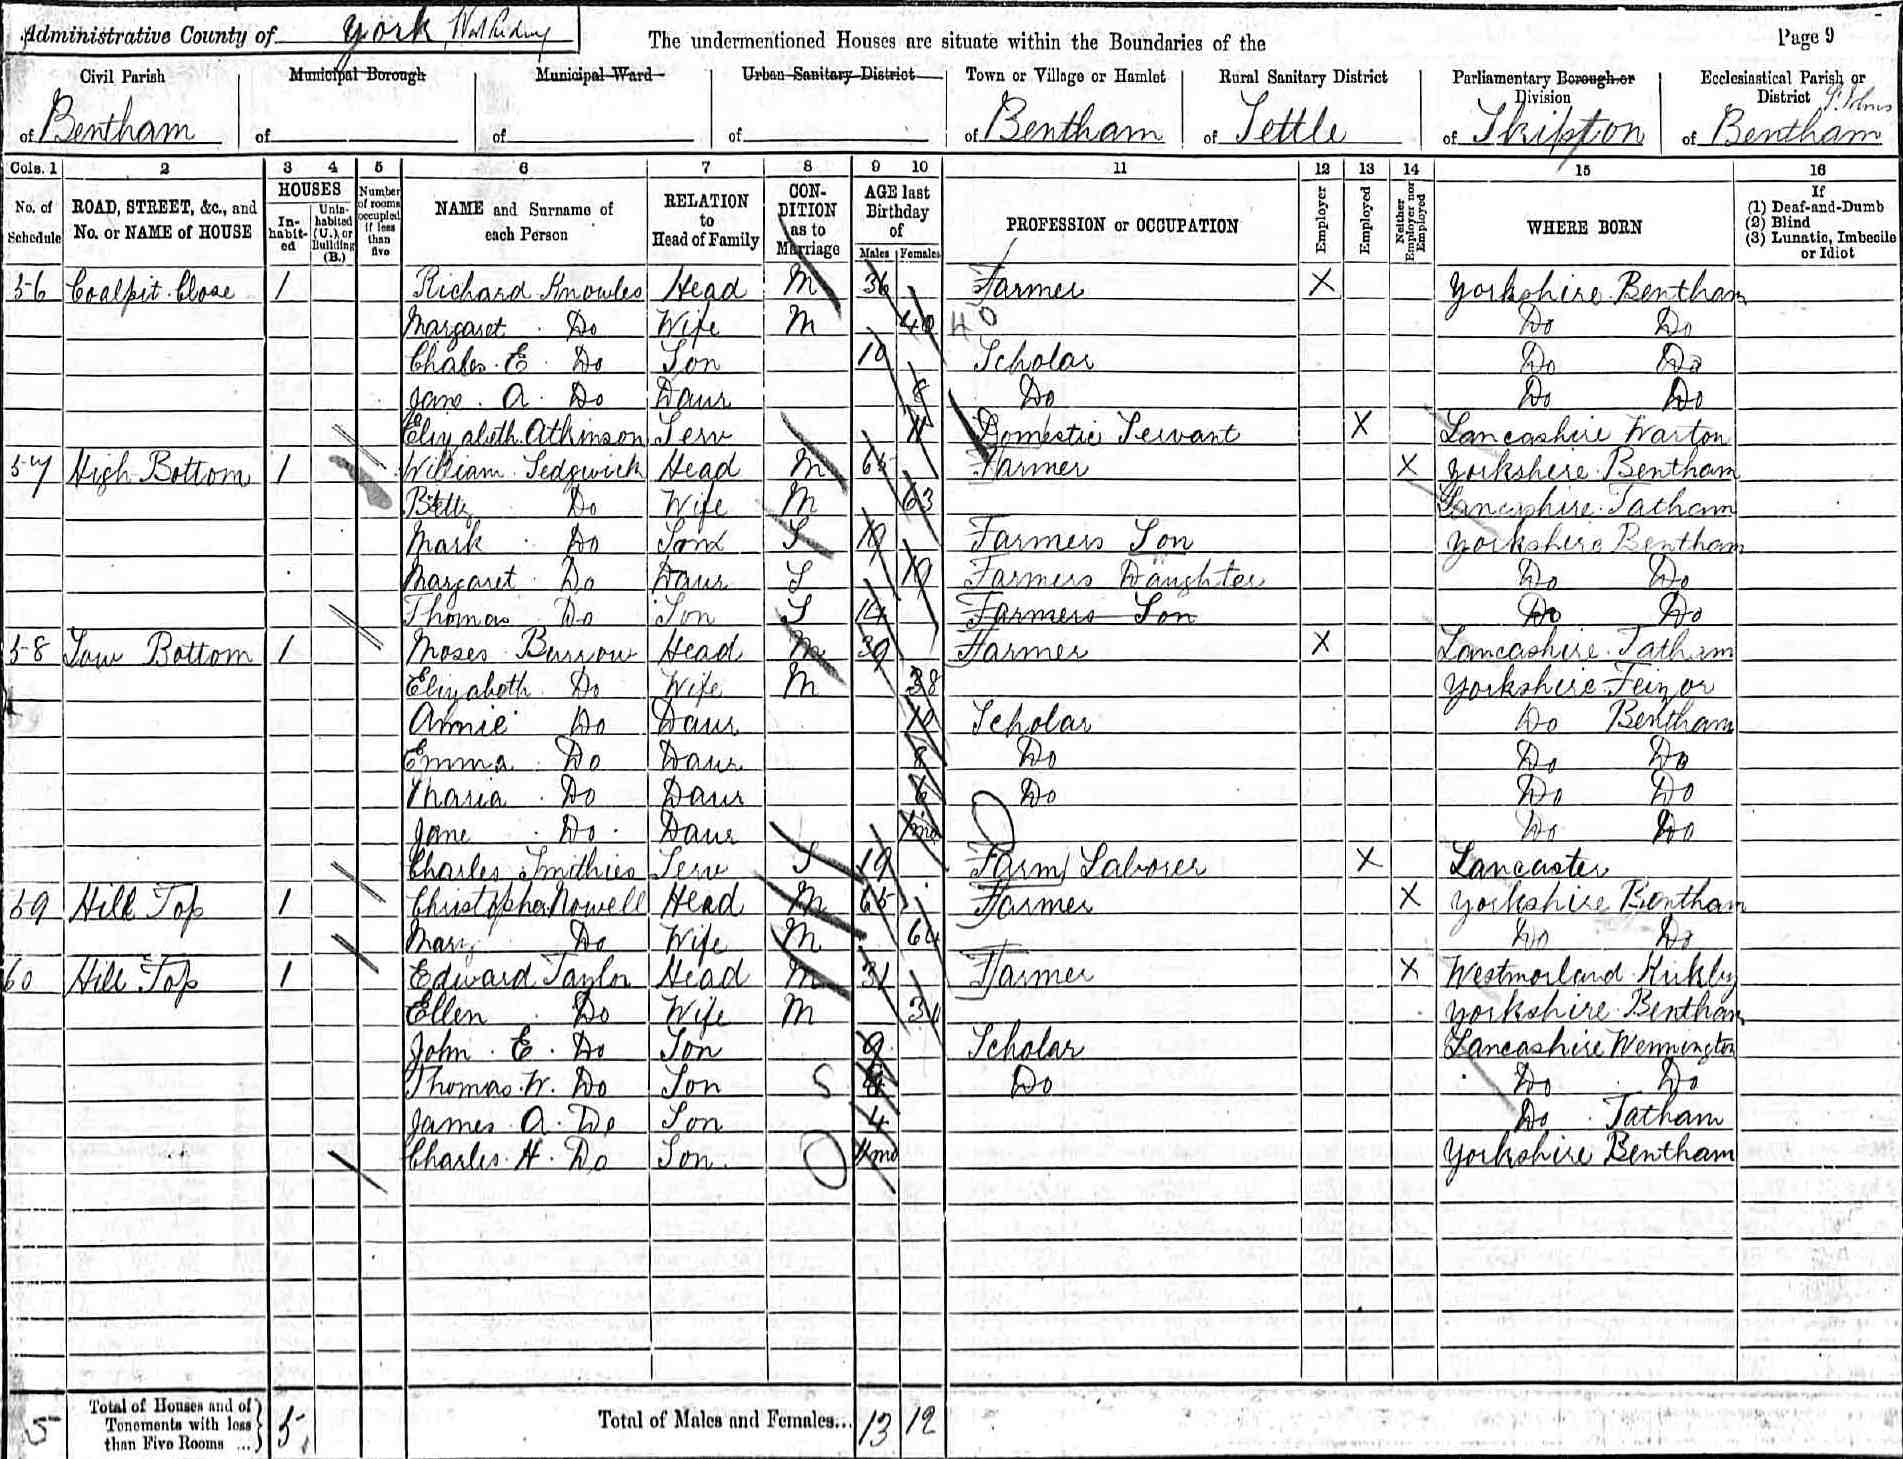 Administrative County of York West Riding
The undermentioned Houses are situate within the Boundaries of the
Page 9
Civil Parish Municipal Borough Municipal Ward Urban Sanitary District Town or Village or Hamlet Rural Sanitary District Parliamentary Borough or Division Ecclesiastical Parish or District
of Bentham of of of of Bentham of Settle of Skipton of St. Johns Bentham
Cols. 1 2 3 4 5 6 7 8 9 10 11 12 13 14 15 16
No. of Schedule ROAD, STREET, &c., and No. or NAME of HOUSE HOUSES In-habit-ed Unin-habited (U.), or Building (B.) Number of rooms occupied if less than five NAME and Surname of each Person RELATION to Head of Family CON-DITION as to Marriage AGE last Birthday of Males Females PROFESSION or OCCUPATION Employer Employed Neither Employer nor Employed WHERE BORN If (1) Deaf-and-Dumb (2) Blind (3) Lunatic, Imbecile or Idiot
56 Coalpit Close 1 Richard Knowles Head M 36 Farmer X Yorkshire Bentham
Margaret Do Wife M 40 40 Do Do
Chales E. Do Son 10 Scholar Do Do
Jane A. Do Daur 8 Do Do Do
Elizabeth Atkinson Serv Domestic Servant X Lancashire Warton
57 High Bottom 1 William Sedgwick Head M 65 Farmer X Yorkshire Bentham
Betty Do Wife M 63 Lancashire Tatham
Mark Do Son S 19 Farmers Son Yorkshire Bentham
Margaret Do Daur S 19 Farmers Daughter Do Do
Thomas Do Son S 14 Farmers Son Do Do
58 Low Bottom 1 Moses Burrow Head M 39 Farmer X Lancashire Tatham
Elizabeth Do Wife M 38 Yorkshire Feizor
Annie Do Daur 10 Scholar Do Bentham
Emma Do Daur 8 Do Do Do
Maria Do Daur 6 Do Do Do
Jane Do Daur 1mo Do Do
Charles Smithies Serv S 19 Farm Laborer X Lancaster
59 Hill Top 1 Christopher Nowell Head M 65 Farmer X Yorkshire Bentham
Mary Do Wife M 64 Do Do
60 Hill Top 1 Edward Taylor Head M 31 Farmer X Westmorland Kirkby
Ellen Do Wife M Yorkshire Bentham
John E. Do Son 9 Scholar Lancashire Wennington
Thomas W. Do Son S Do Do Do
James A. Do Son 4 Do Tatham
Charles H. Do Son 4mo Yorkshire Bentham
5 Total of Houses and of Tenements with less than Five Rooms ... 5 Total of Males and Females... 13 12